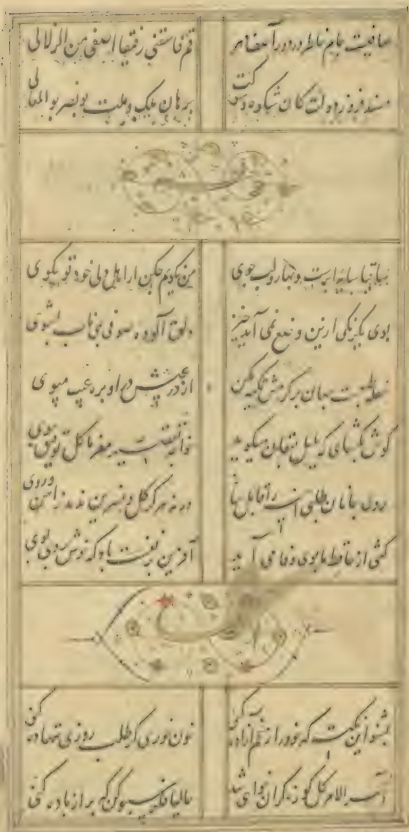 صافیست جام خاطر در دور آصف عهد
قم فاسقنی رحیقا اصفی من الزلالی
مسند فروز دولت کان شکوه و شوکت
برهان ملک و ملت بونصر بوالمعالی
ساقیا سایه ابرست و بهار و لب جوی
من نگویم چه کن ار اهل دلی خود تو بگوی
بوی یکرنگی ازین نمی آید خیز
دلق آلوده صوفی بمی ناب بشوی
سفله طبعست جهان بر کرمش تکیه مکن
گوش بگشای که بلبل بفغان میگوید
خواجه تقصیر مفرما گل توفیق ببوی
روی جانان طلبی آینه را قابل ساز
ور نه هرگز گل و نسرین ندمد ز آهن و روی
گفتی از حافظ ما بوی ریا می آید
آفرین بر نفست باد که خوش بردی بوی
بشنو این نکته که خود را ز غم آزاده کنی
خون خوری گر طلب روزی ننهاده کنی
آخر الامر گل کوزه گران خواهی شد
حالیا فکر سبو کن که پر از باده کنی